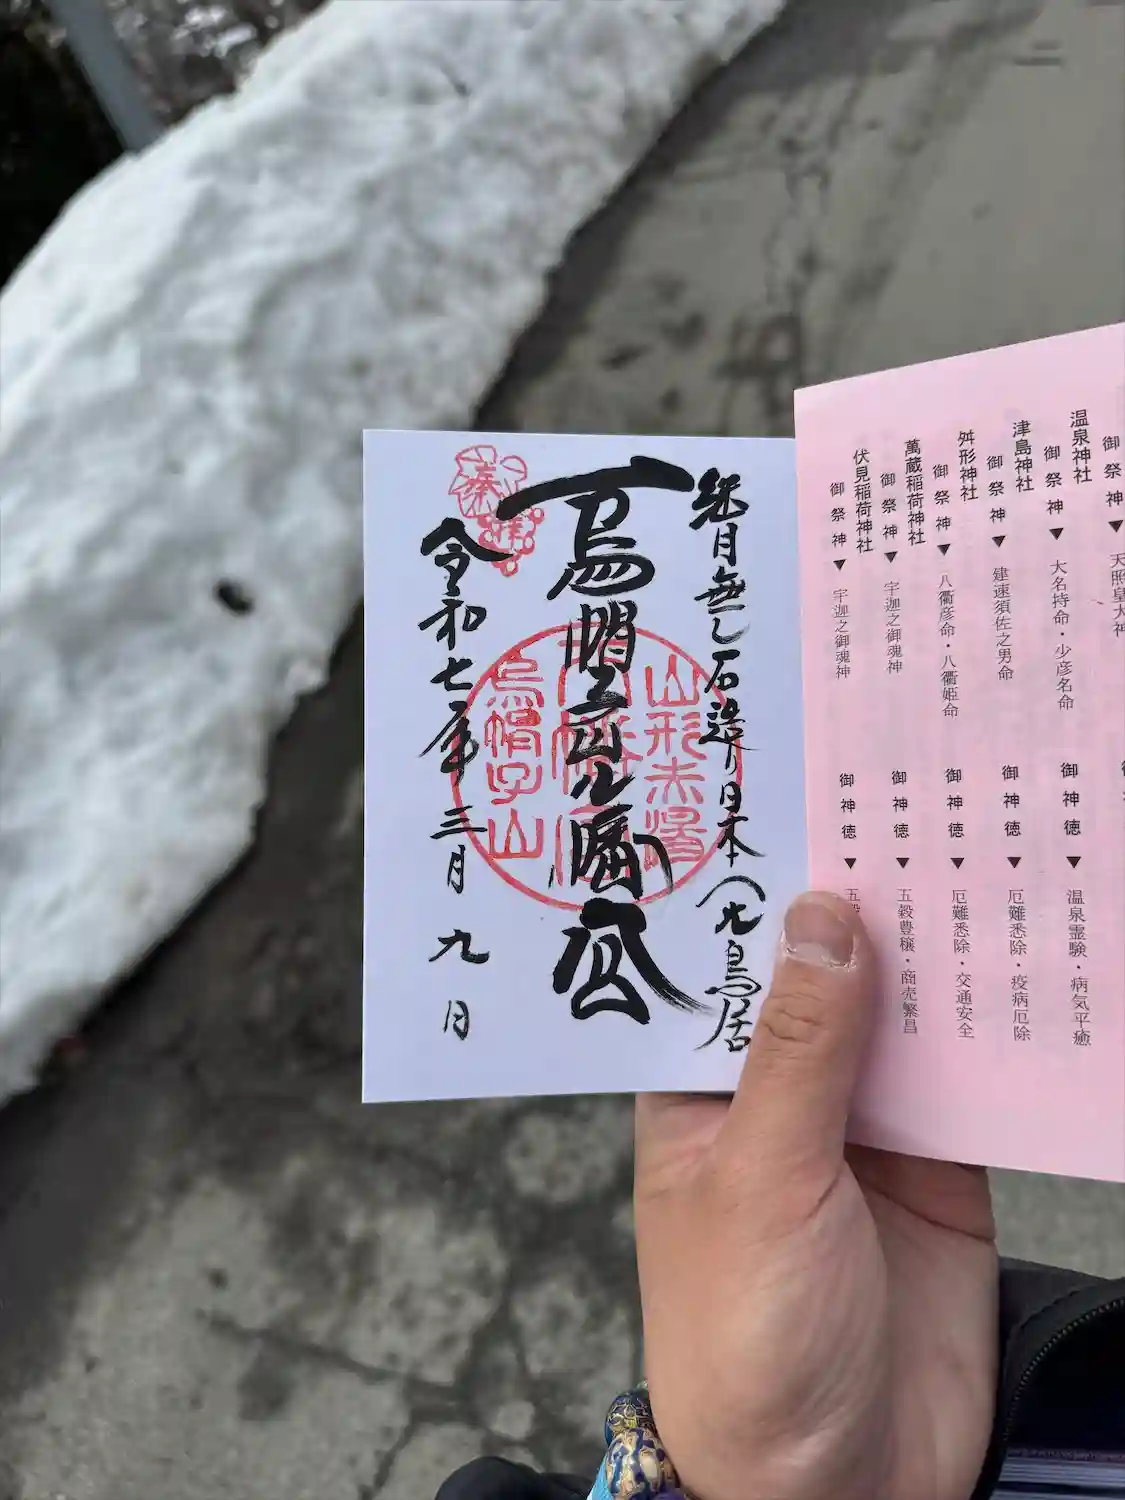 継目無し石造り日本一ノ鳥居
烏帽子山八幡宮
令和七年三月九日
奉拝
山形赤湯
八幡宮
烏帽子山
御祭神▼
天照皇大神
温泉神社
御祭神▼大名持命・少彦名命
御神徳▼温泉霊験・病気平癒
津島神社
御祭神▼建速須佐之男命
御神徳▼厄難悉除・疫病厄除
舛形神社
御祭神▼八衢彦命・八衢姫命
御神徳▼厄難悉除・交通安全
萬蔵稲荷神社
御祭神▼宇迦之御魂神
御神徳▼五穀豊穣・商売繁昌
伏見稲荷神社
御祭神▼宇迦之御魂神
御神徳▼五穀